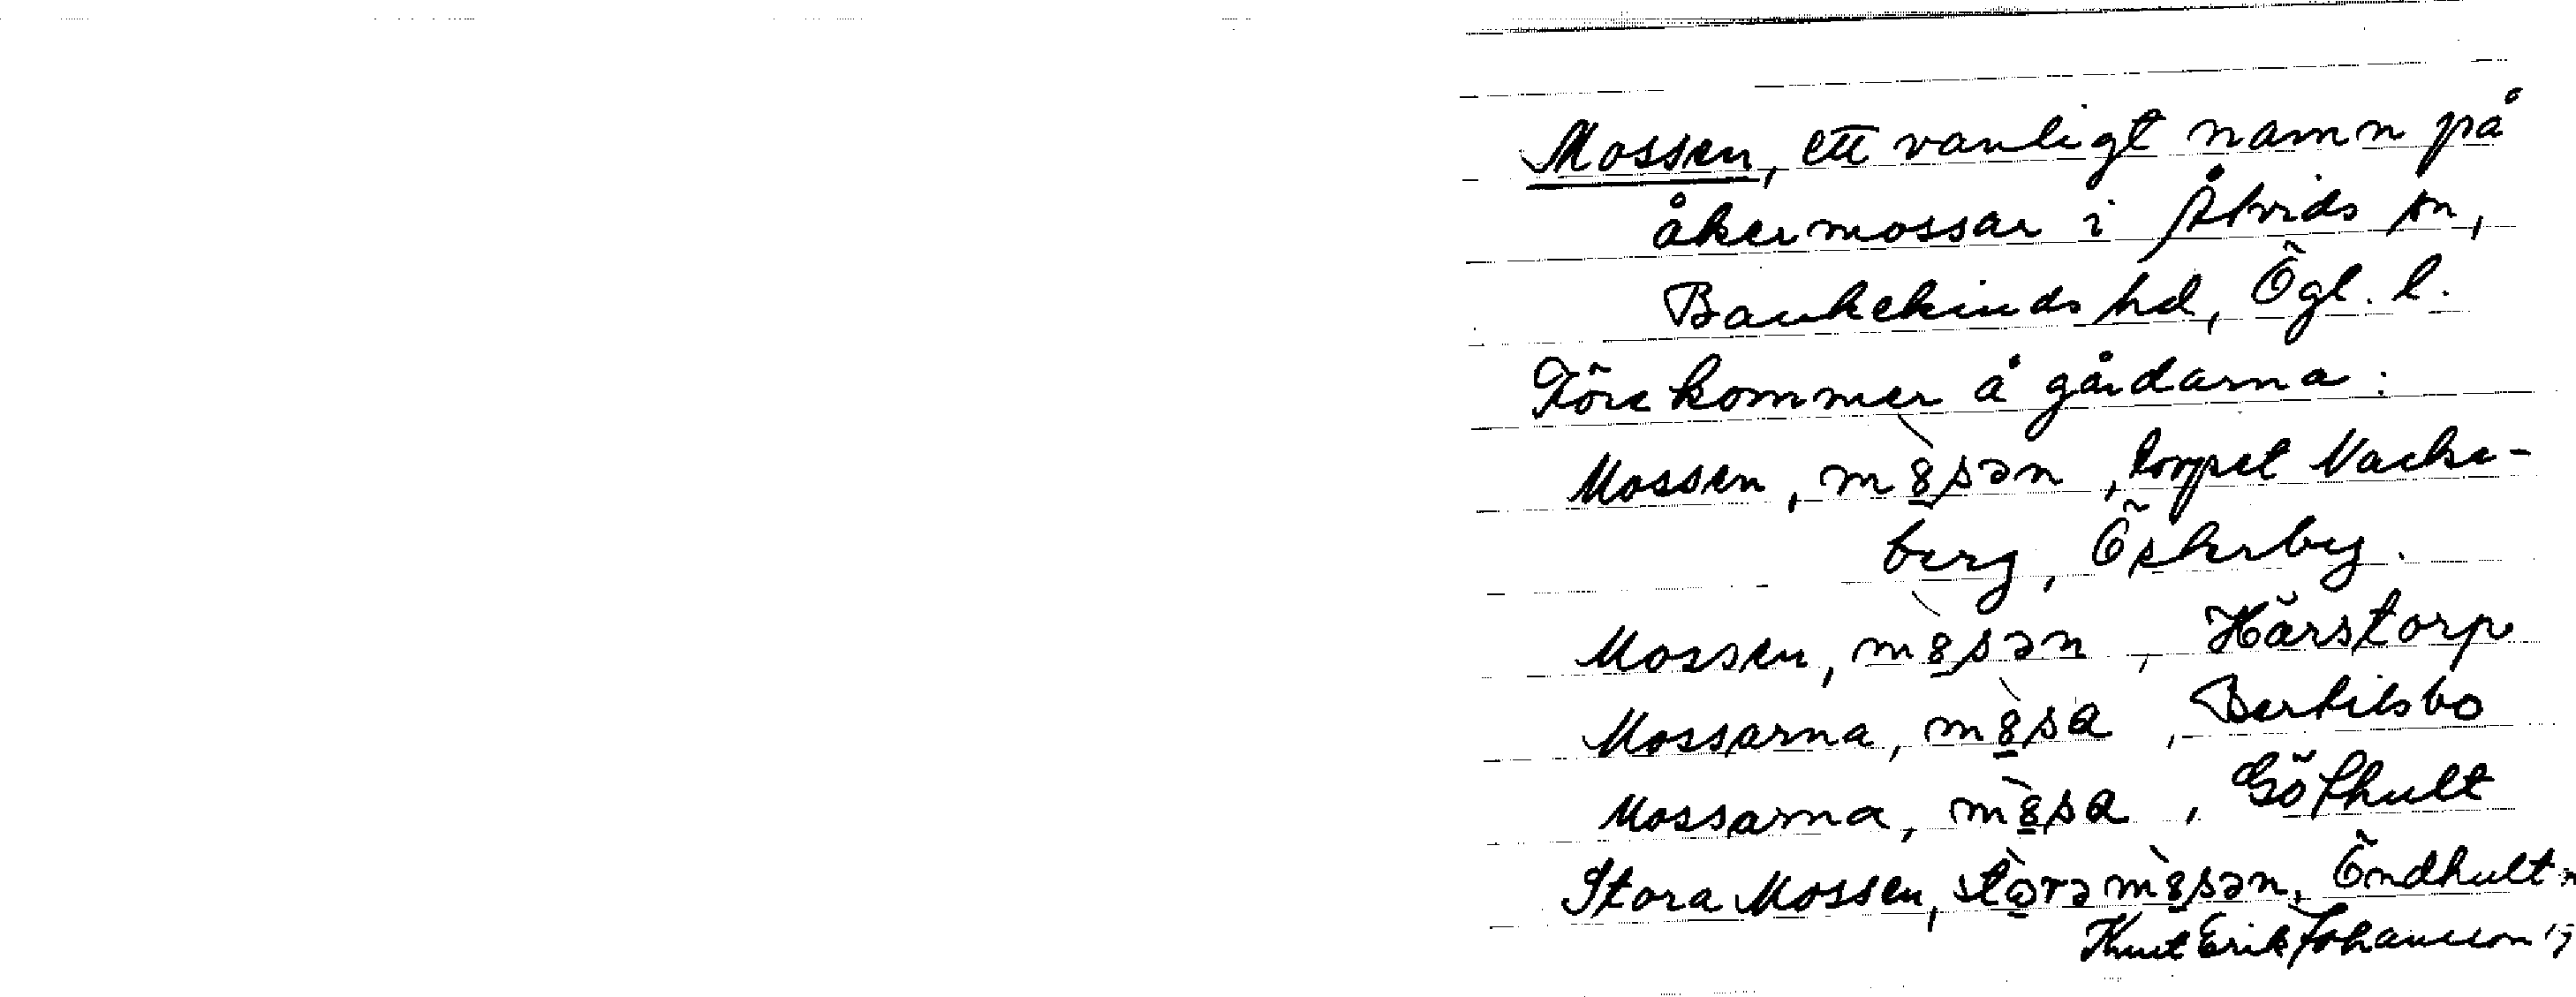 Mossen, ett vanligt namn på
åkermossar i Åtvids sn,
Bankekinds hd, Ögl. l.
Förekommer å gårdarna:
Mossen, m8̲sən, torpet Vacke-
berg, Österby.
Mossen, m8̲sən, Härstorp
Mossarna, m8̲sa, Bertilsbo
Mossarna, m8̲sa, Göthult
Stora Mossen, sto̲rə m8̲sən, Öndhult
Knut Erik Johansson